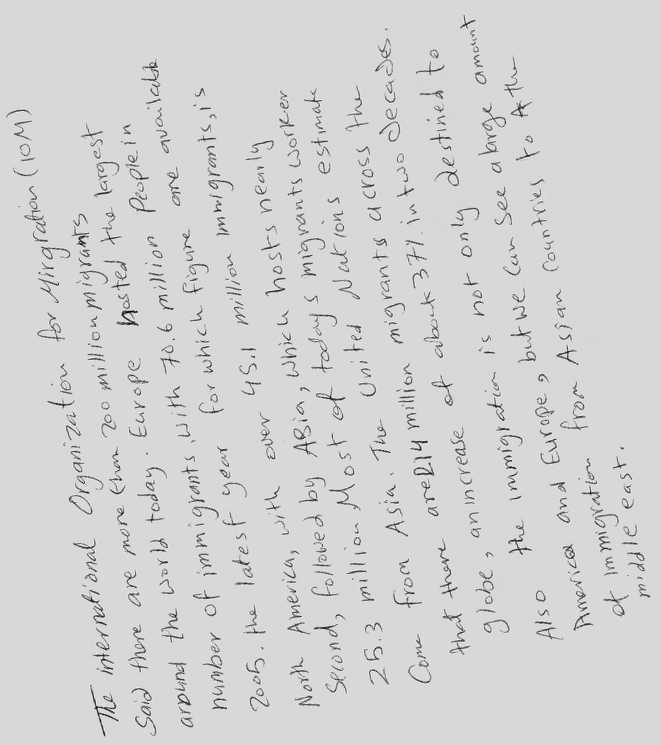 The international Organization for Mirgration (IOM)
Said there are more than 200 million migrants
around the world today. Europe hosted the largest
number of immigrants, with 70.6 million People in
2005. the latest year for which figure are available
North America, with over 45.1 million immigrants, is
Second, followed by ASia, which hosts nearly
25.3 million. Most of today's migrants worker
Come from Asia. The United Nations estimate
that there are 214 million migrants across the
globe, an increase of about 37% in two decades.
Also the immigration is not only destined to
America and Europe, but we can see a large amount
of immigration from Asian Countries to the
middle east.